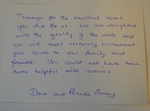 Thankyou for the excellent work
you did for us. We are delighted
with the quality of the work and
we will most certainly recommend
you work to our family and
friends. You could not have been
more helpful with advice
Dave and